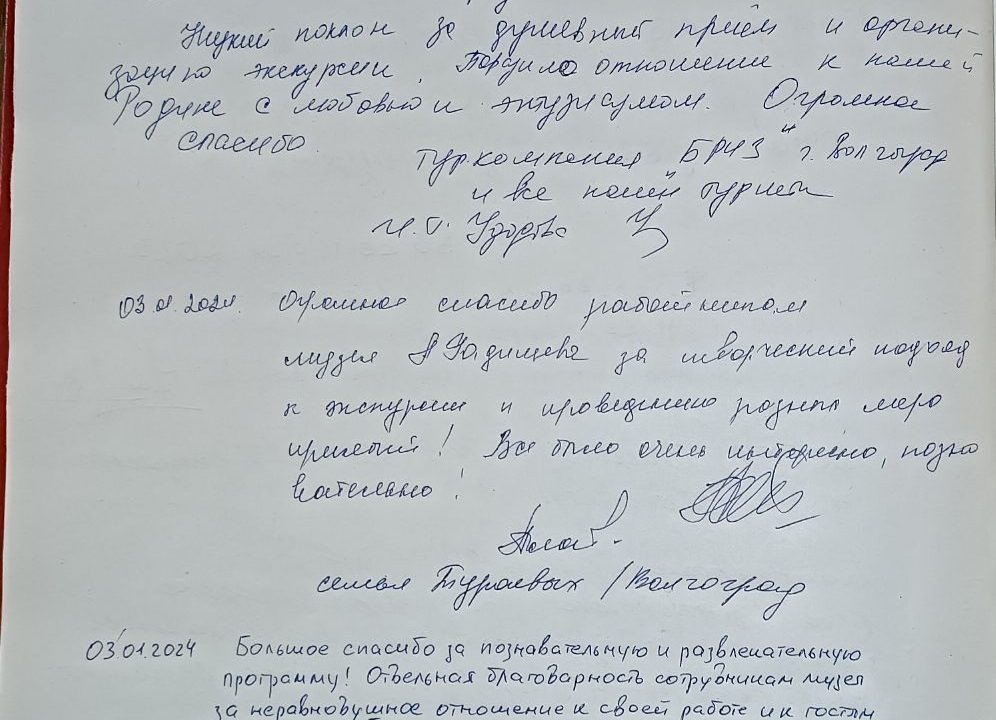 Низкий поклон за душевный приём и органи-
зацию экскурсии. Поразило отношение к нашей
Родине с любовью и энтузиазмом. Огромное
спасибо.
туркомпания БРИЗ" г. Волгоград
и все наши туристы
03.01.2024. Огромное спасибо работникам
музея А Радищева за творческий подход
к экскурсии и проведению разных меро
приятий! Все было очень интересно, позна
вательно!
семья Тураевых / Волгоград
03.01.2024 Большое спасибо за познавательную и развлекательную
программу! Отдельная благодарность сотрудникам музея
за неравнодушное отношение к своей работе и к гостям